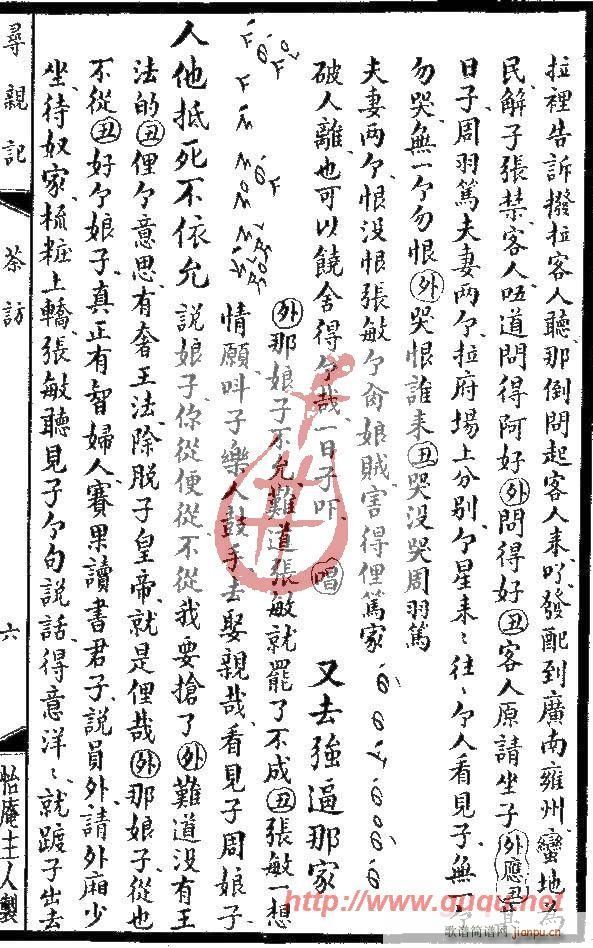 拉裡告訴撥拉客人聽、那倒問起客人来吖、發配到廣南雍州、蠻地為
民、解子張禁、客人呸道問得阿好㊀外問得好㊀丑客人原請坐子外應丑
日子周羽篤夫妻兩个、拉府場上分别、个星来〻往〻个人看見子、無一个
勿哭、無一个勿恨外哭恨誰来丑哭没哭周羽篤
夫妻兩个、恨没恨張敏个 娘賊、害得俚篤家
破人離、也可以饒舍得个哉、一日子吓、唱又去強逼那家
外那娘子不允、難道張敏就罷了不成丑張敏一想
情願叫子樂人鼓手去娶親哉、看見子周娘子
人他抵死不依允
說娘子你從便從不從我要搶了外難道没有王
法的丑俚个意思、有奢王法、除脫子皇帝、就是俚哉外那娘子從也
不從丑好个娘子、真正有智婦人、賽果讀書君子、說員外、請外廂少
坐、待奴家、梳粧上轎、張敏聽見子个句說話、得意洋〻、就踱子出去
尋親記
茶訪
六
怡庵主人製
http://www.guqu.net
歌谱简谱网
jianpu.cn